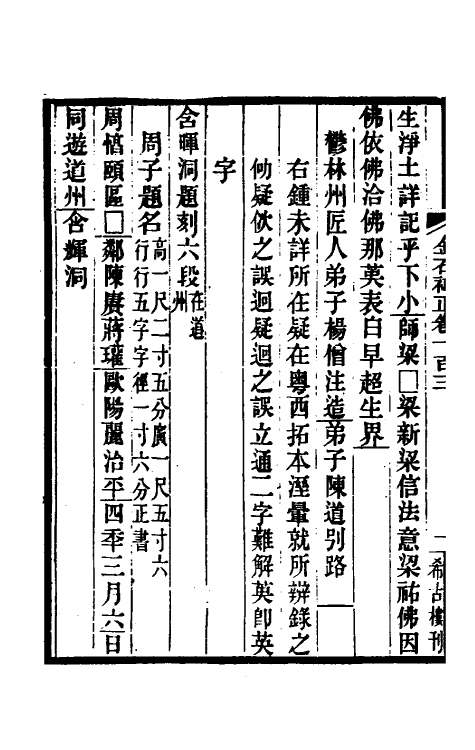 金石補正卷一百三
一
希古樓刊
生淨土詳記乎下小師梁□梁新梁信法意梁祐佛因
佛依佛洽佛那英表白早超生界
鬱林州匠人弟子楊僧注造弟子陳道別路
右鍾未詳所在疑在粵西拓本溼暈就所辨錄之
㑂疑佽之誤迴疑迴之誤立通二字難解英卽英
字
含暉洞題刻六段在道州
周子題名高一尺二寸五分廣一尺五寸六行行五字字徑一寸六分正書
周惇頤區□鄰陳賡蔣瓘歐陽麗治平四季三月六日
同遊道州含輝洞